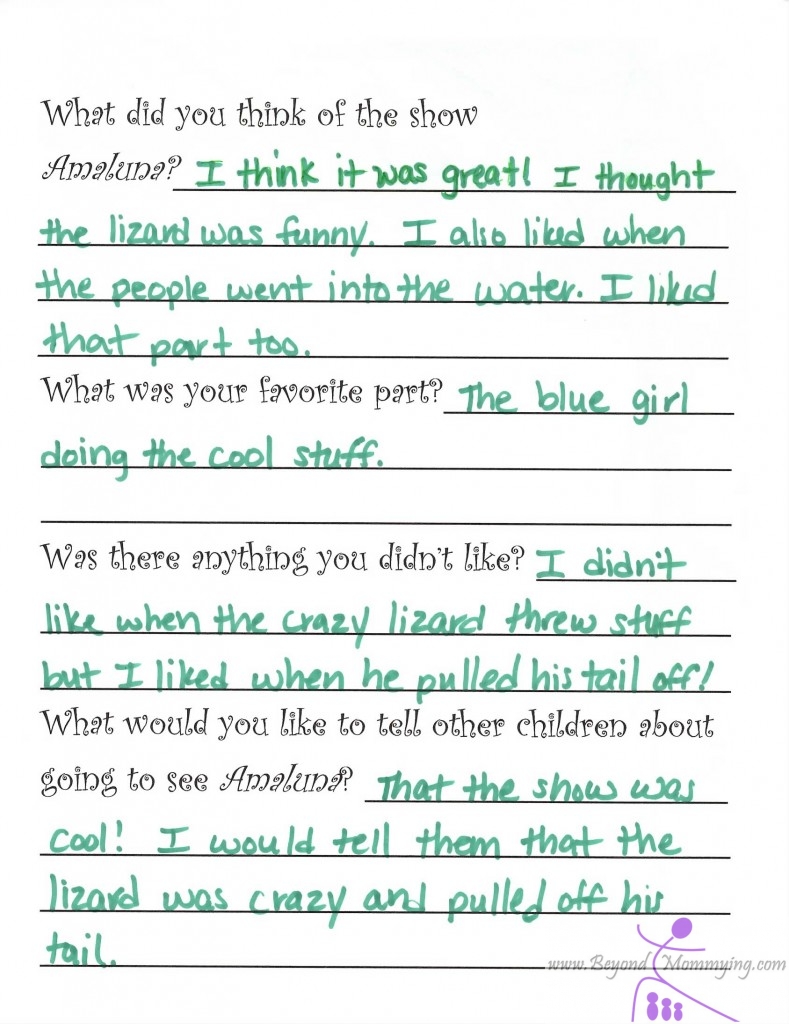 What did you think of the show
Amaluna? I think it was great! I thought
the lizard was funny. I also liked when
the people went into the water. I liked
that part too.
What was your favorite part? The blue girl
doing the cool stuff.
Was there anything you didn't like? I didn't
like when the crazy lizard threw stuff
but I liked when he pulled his tail off!
What would you like to tell other children about
going to see Amaluna? That the show was
cool! I would tell them that the
lizard was crazy and pulled off his
tail.
www.Beyond Mommying.com